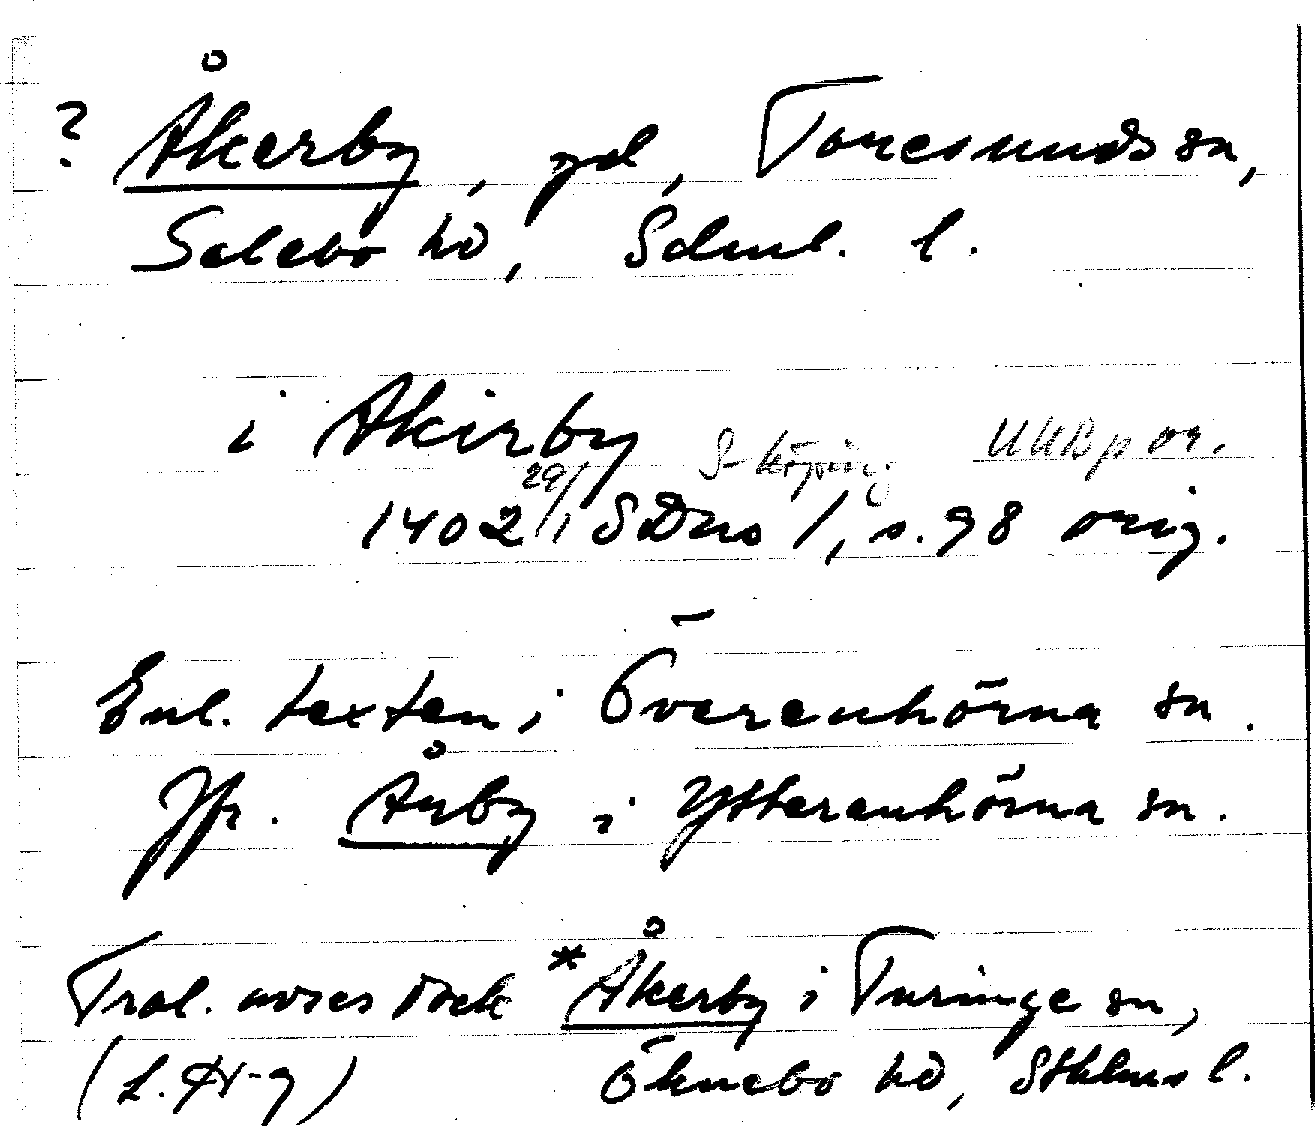 ? Åkerby, gd, Toresunds sn,
Selebo hd, Södml. l.
i Akirby S-köping UUB p or.
1402 29/1 SDns 1, s. 98 orig.
Enl. texten i Överenhörna sn.
Jfr. Årby i Ytterenhörna sn.
Trol. avses dock *Åkerby i Turinge sn,
(L. H-g) Öknebo hd, Sthlms l.